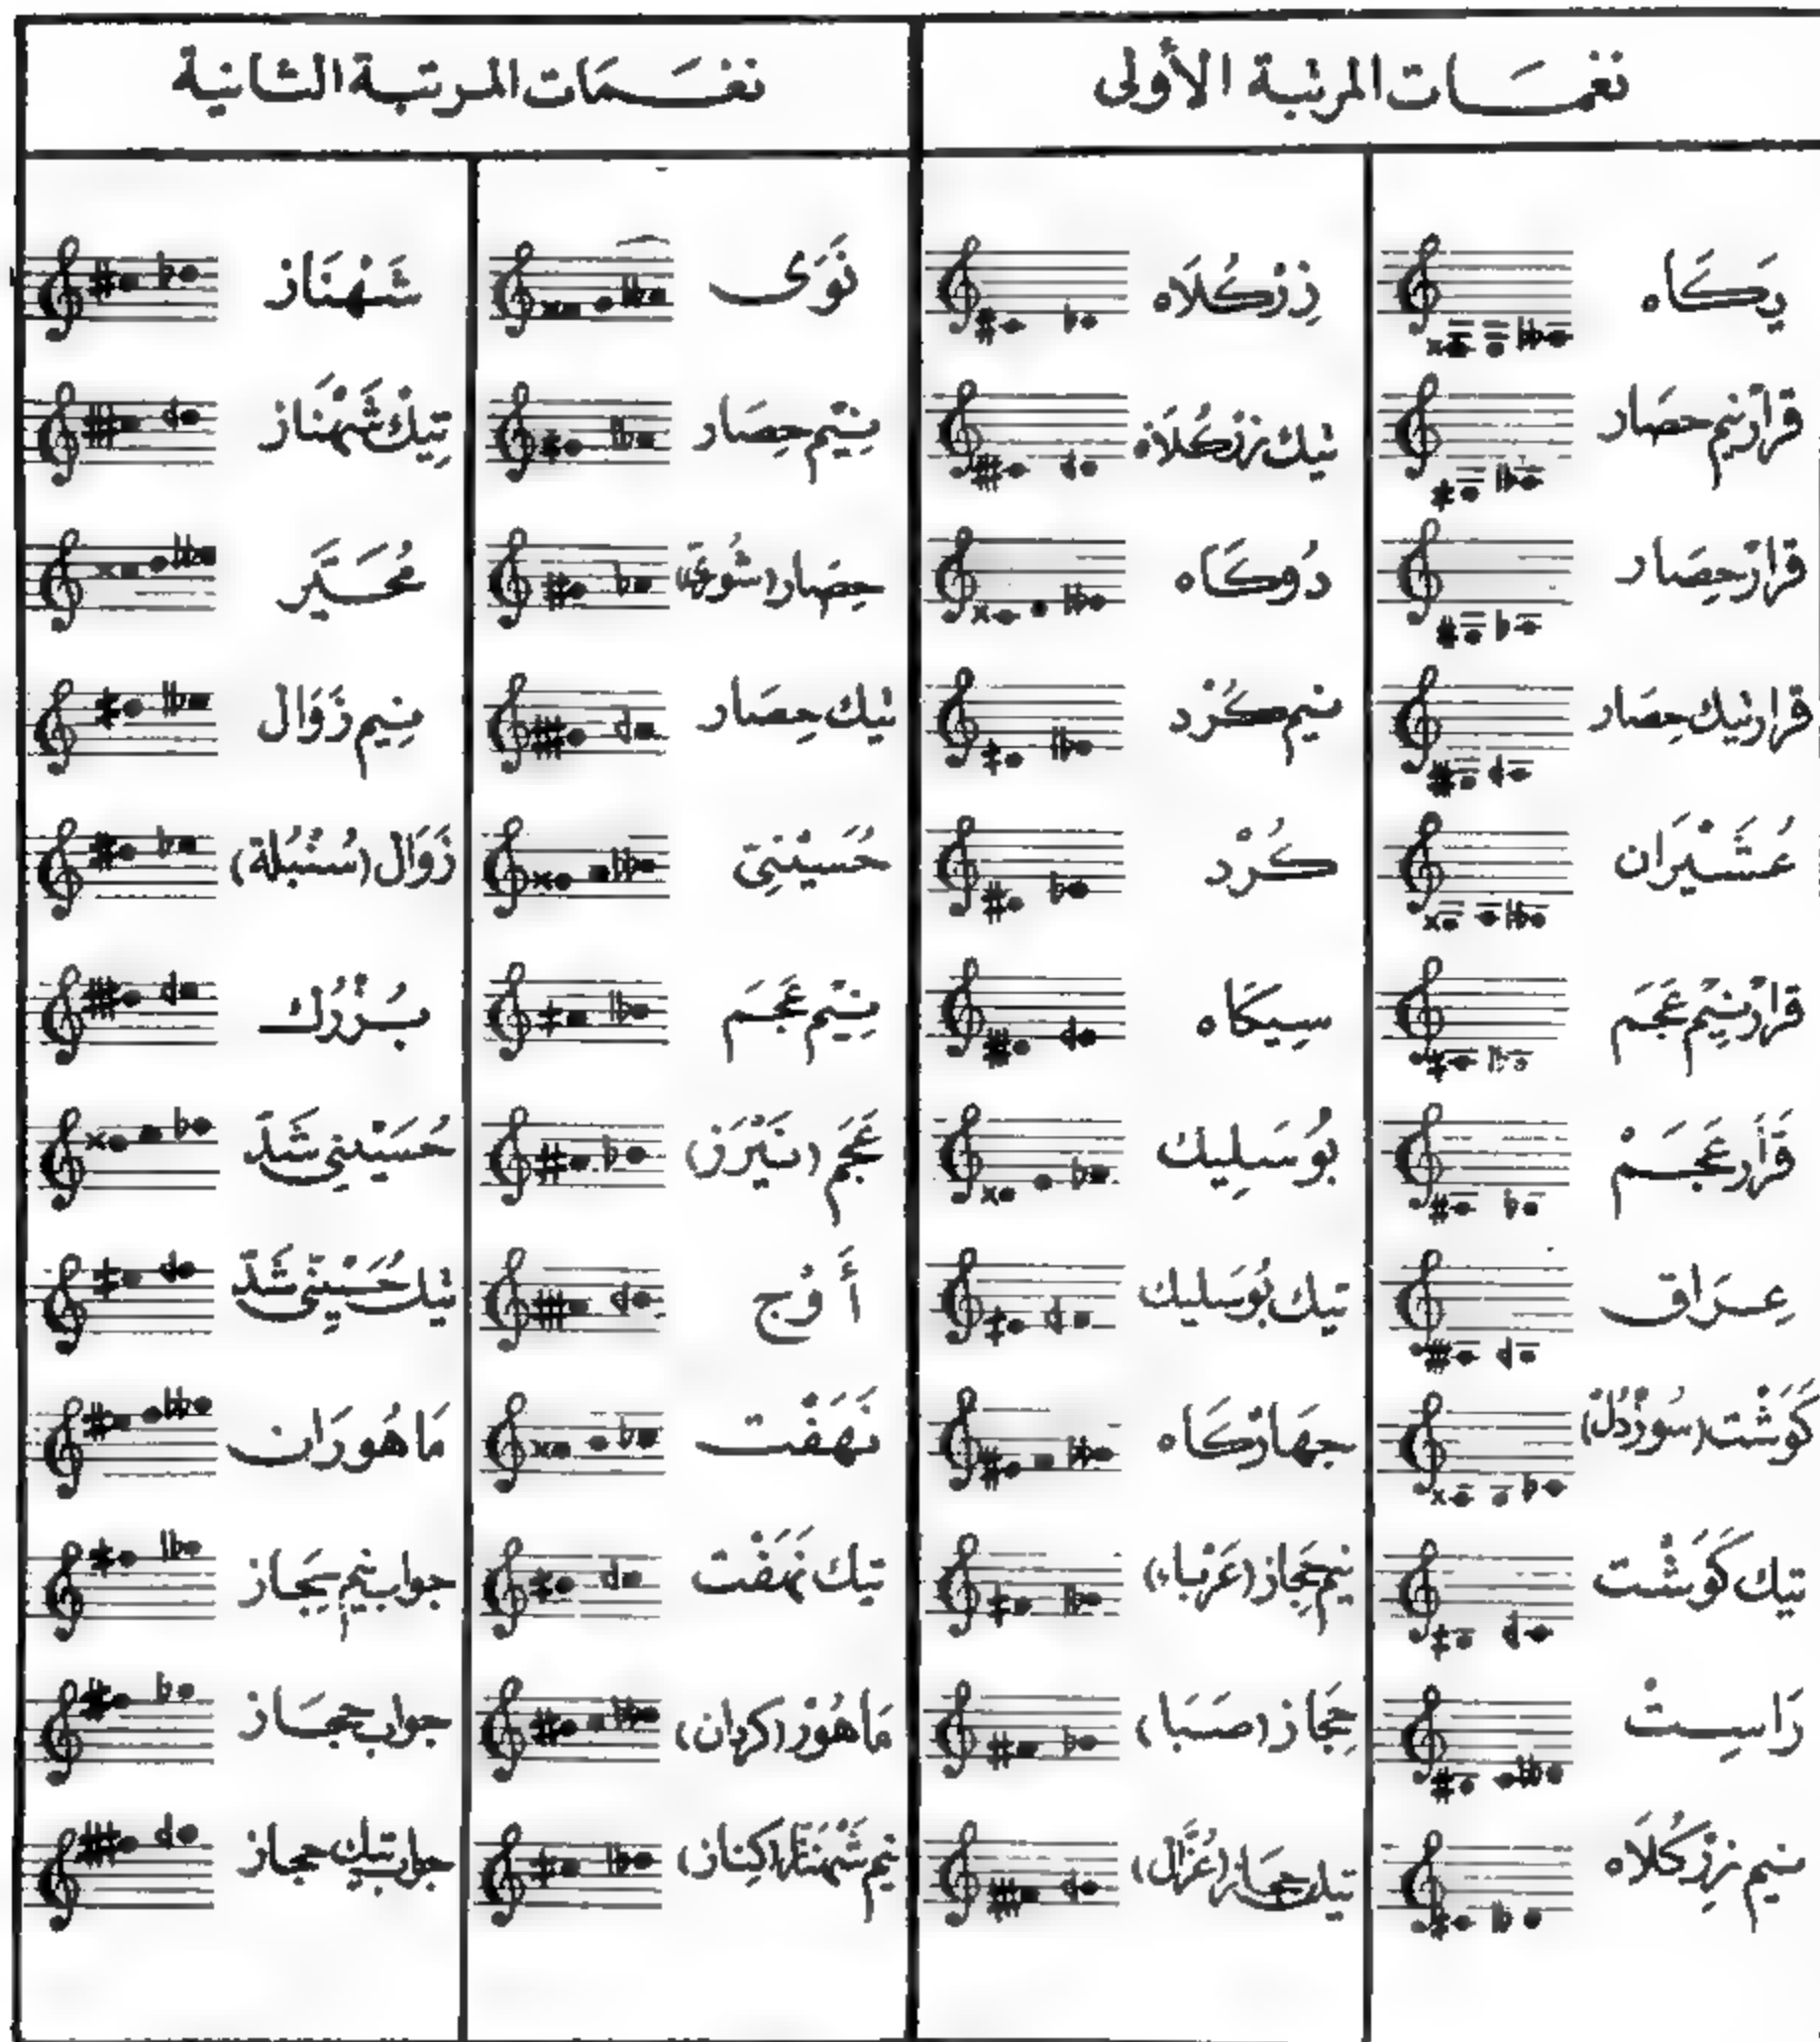 نغمات المرتبة الأولى
يكاه
قرار نيم حصار
قرار حصار
قرار تيك حصار
عشيران
قرار نيم عجم
قرار عجم
عراق
كوشت (سوزدل)
تيك كوشت
راست
نيم زركلاه
زركلاه
تيك زركلاه
دوكاه
نيم كرد
كرد
سيكاه
بوسليك
تيك بوسليك
جهاركاه
نيم حجاز (عرباء)
حجاز (صبا)
تيك حجاز (عزال)
نغمات المرتبة الثانية
نوى
نيم حصار
حصار (شوري)
تيك حصار
حسيني
نيم عجم
عجم (نيرز)
أوج
نهفت
تيك نهفت
ماهور (كردان)
نيم شهناز
شهناز
تيك شهناز
محير
نيم زوال
زوال (سنبلة)
بزرك
حسيني شد
تيك حسيني شد
ماهوران
جواب نيم حجاز
جواب حجاز
جواب تيك حجاز